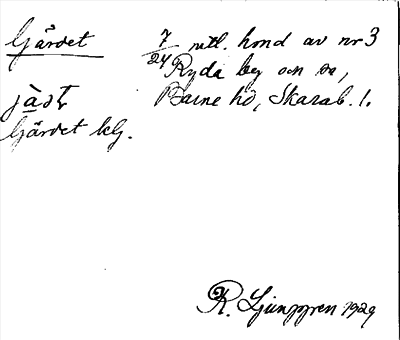 Gärdet 7/24 mtl. hmd av nr 3
Ryda by och sn,
jàṣt Barne hd, Skarab. l.
Gärdet klg.
R. Ljunggren 1929